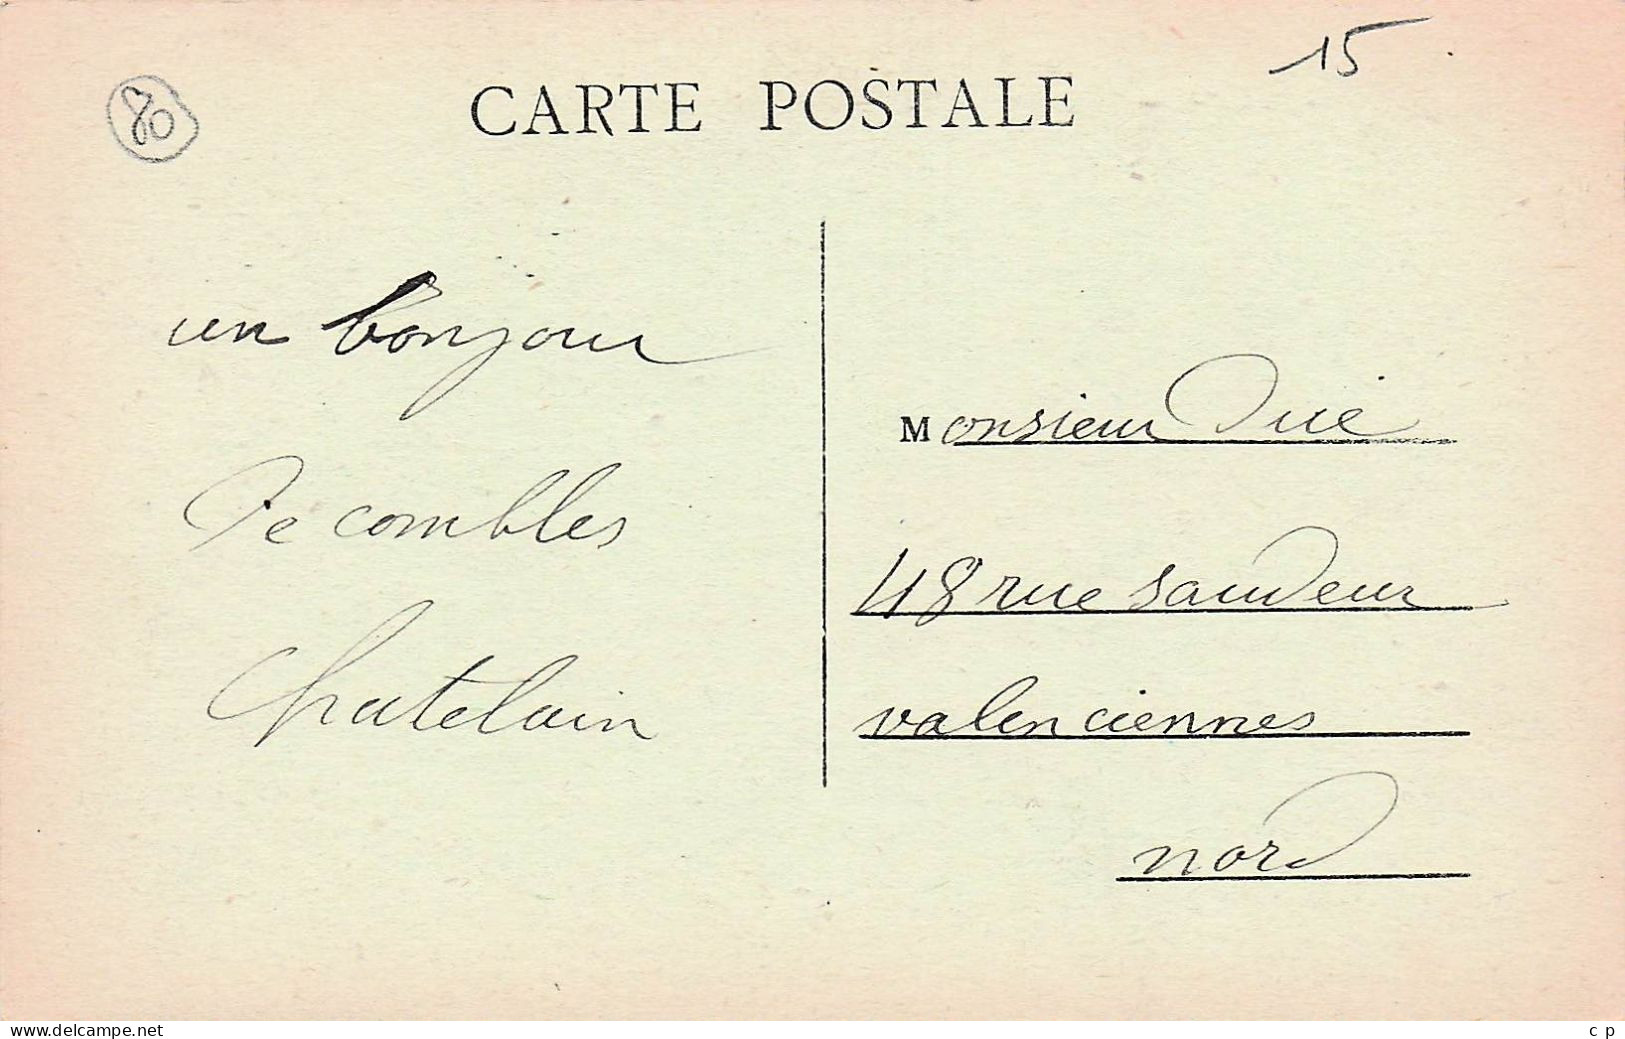 80
15
CARTE POSTALE
un bonjour
De combles
Chatelain
Monsieur Dué
48 rue saudeur
valenciennes
nord
www.delcampe.net
c p